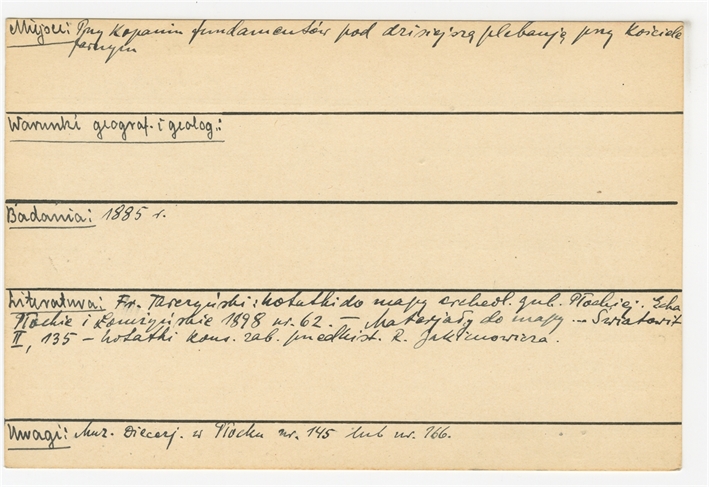 Miejsce: Przy kopaniu fundamentów pod dzisiejszą plebanją przy Kościele
farnym
Warunki geograf. i geolog.:
Badania: 1885 r.
Literatura: Fr. Tarczyński: Notatki do mapy archeol. gub. Płockiej. Echa
Płockie i Łomżyńskie 1898 nr. 62. – Materjały do mapy – Światowit
II, 135 – Notatki kons. zab. przedhist. R. Jakimowicza.
Uwagi: Muz. Diecezj. w Płocku nr. 145 lub nr. 166.